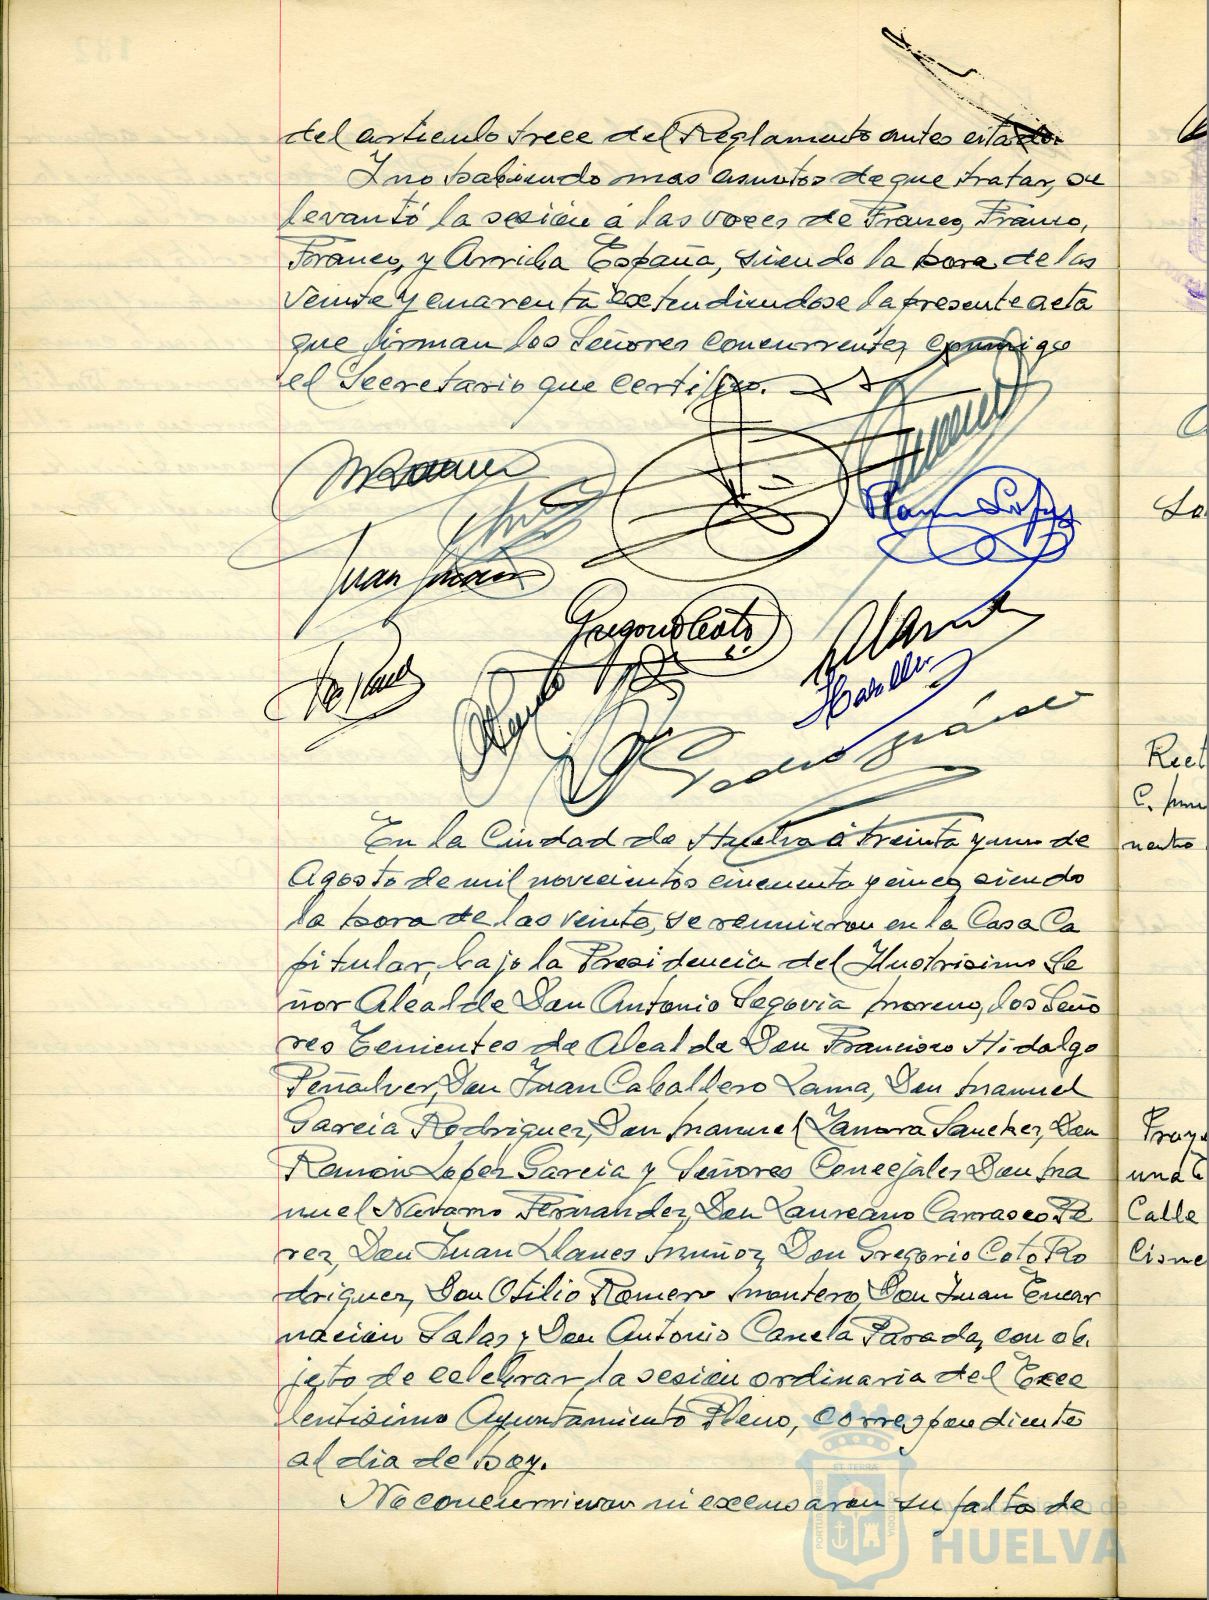 del articulo trece del Reglamento antes citado.
Y no habiendo mas asuntos de que tratar, se
levantó la sesión á las voces de Franco, Franco,
Franco, y Arriba España, siendo la hora de las
veinte y cuarenta extendiendose la presente acta
que firman los Señores concurrentes conmigo
el Secretario que certifico.
Ramon Lopez
Juan
Gregorio Coto
Pedro
En la Ciudad de Huelva á treinta y uno de
Agosto de mil novecientos cincuenta y cinco, siendo
la hora de las veinte, se reunieron en la Casa Ca
pitular, bajo la Presidencia del Ilustrisimo Se
ñor Alcalde Don Antonio Segovia Moreno, los Seño
res Tenientes de Alcalde Don Francisco Hidalgo
Peñalver, Don Juan Caballero Lama, Don Manuel
Garcia Rodriguez, Don Manuel Zamora Sanchez, Don
Ramón Lopez Garcia y Señores Concejales Don Ma
nuel Navarro Fernandez, Don Laureano Carrasco Pe
rez, Don Juan Llanes Muñoz, Don Gregorio Coto Ro
driguez, Don Otilio Romero Montero, Don Juan Encar
nación Salas y Don Antonio Canela Parada, con ob
jeto de celebrar la sesión ordinaria del Exce
lentisimo Ayuntamiento Pleno, correspondiente
al dia de hoy.
No concurrieron ni excusaron su falta de
Ayuntamiento de
HUELVA
Calle